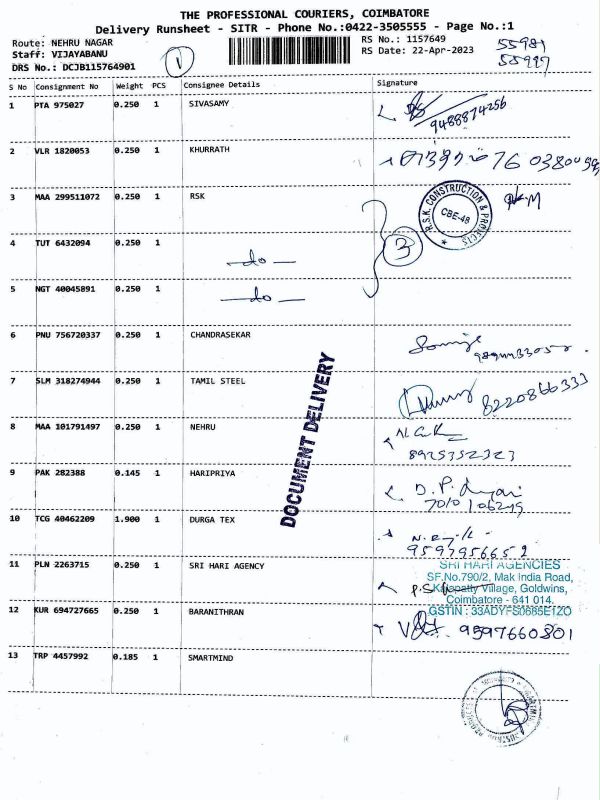 THE PROFESSIONAL COURIERS, COIMBATORE
Delivery Runsheet - SITR - Phone No.:0422-3505555 - Page No.:1
Route: NEHRU NAGAR
RS No.: 1157649
Staff: VIJAYABANU
RS Date: 22-Apr-2023
DRS No.: DCJB115764901
1
55981
S No Consignment No Weight PCS Consignee Details Signature
1 PTA 975027 0.250 1 SIVASAMY
9488874256
2 VLR 1820053 0.250 1 KHURRATH
3 MAA 299511072 0.250 1 RSK
R.S.K. CONSTRUCTION & PROJECTS
CBE-48
4 TUT 6432094 0.250 1 -do-
3
5 NGT 40045891 0.250 1 -do-
6 PNU 756720337 0.250 1 CHANDRASEKAR
7 SLM 318274944 0.250 1 TAMIL STEEL
8220866333
8 MAA 101791497 0.250 1 NEHRU
8925352323
DOCUMENT DELIVERY
9 PAK 282388 0.145 1 HARIPRIYA
10 TCG 40462209 1.900 1 DURGA TEX
9597956652
11 PLN 2263715 0.250 1 SRI HARI AGENCY
SRI HARI AGENCIES
SF.No.790/2, Mak India Road,
Village, Goldwins,
Coimbatore - 641 014.
GSTIN : 33ADYFS0685E1ZO
12 KUR 694727665 0.250 1 BARANITHRAN
9597660801
13 TRP 4457992 0.185 1 SMARTMIND